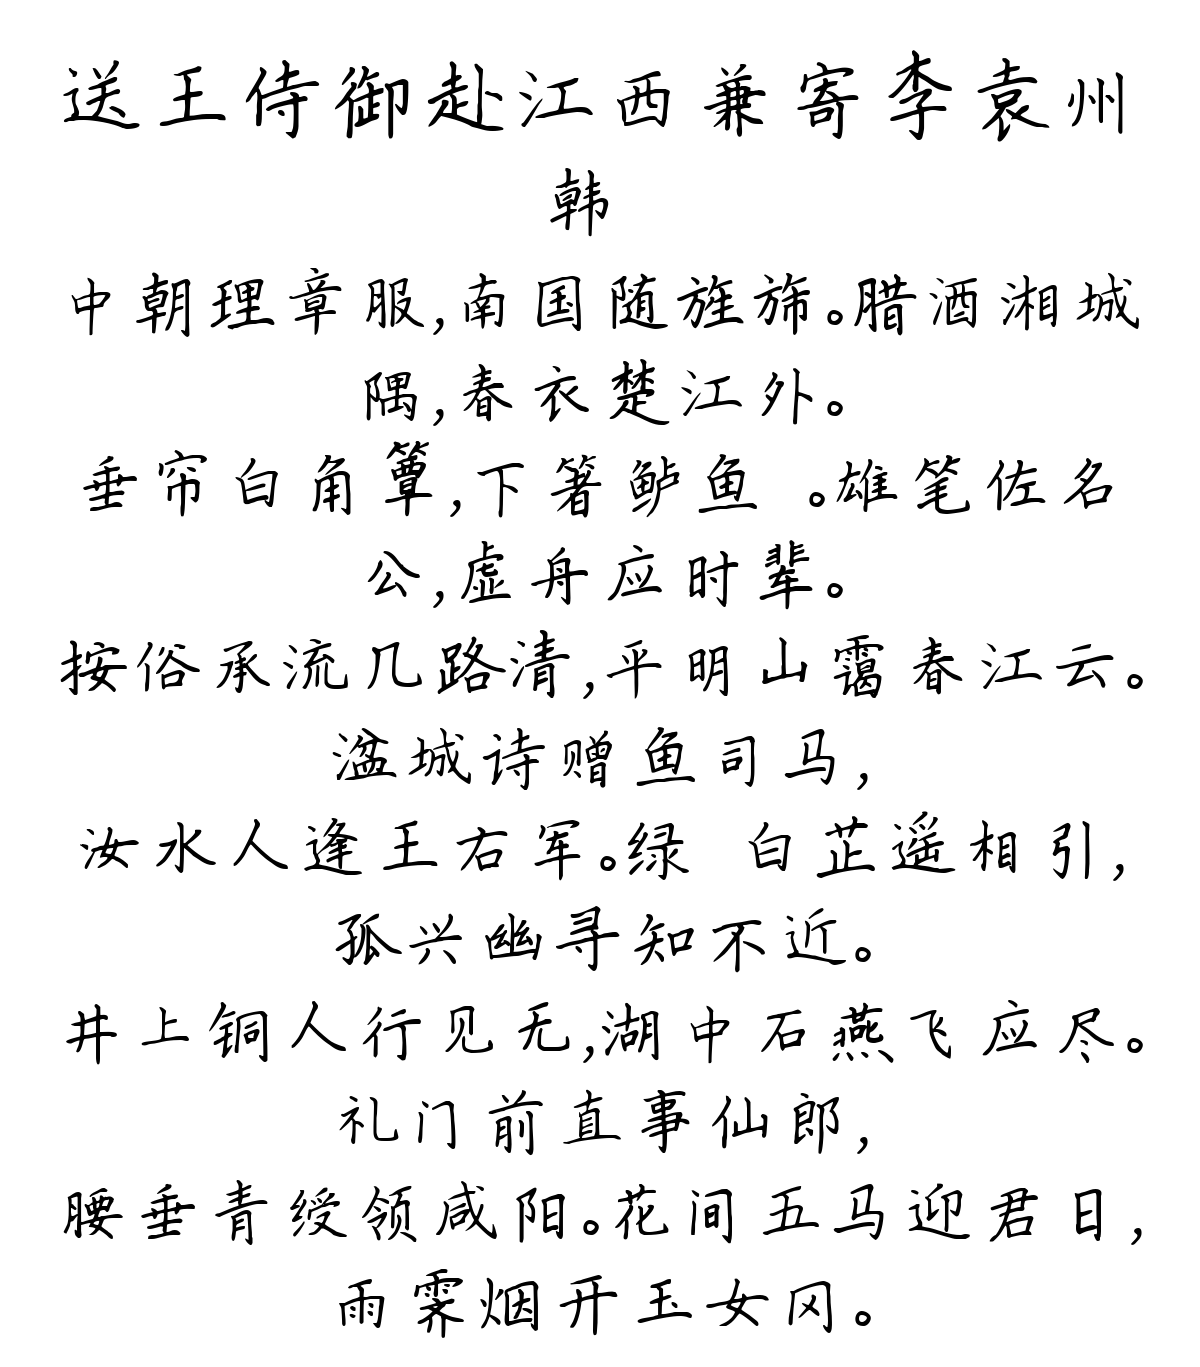 送王侍御赴江西兼寄李袁州
韩
中朝理章服,南国随旌旆。腊酒湘城
隅,春衣楚江外。
垂帘白角簟,下箸鲈鱼 。雄笔佐名
公,虚舟应时辈。
按俗承流几路清,平明山霭春江云。
湓城诗赠鱼司马,
汝水人逢王右军。绿 白芷遥相引,
孤兴幽寻知不近。
井上铜人行见无,湖中石燕飞应尽。
礼门前直事仙郎,
腰垂青绶领咸阳。花间五马迎君日,
雨霁烟开玉女冈。